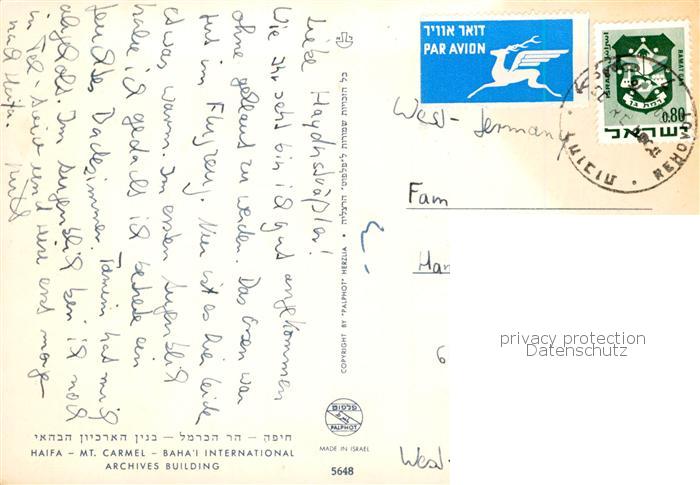 Liebe Haydnsträßler!
Wie Ihr seht bin ich gut angekommen
ohne geklaut zu werden. Das Essen war
gut im Flugzeug. Nur ist es hier leider
etwas warm. Im ersten Augenblick
habe ich gedacht ich betrete ein
feuchtes Dachzimmer. Tamim hat mich
abgeholt. Im Augenblick bin ich noch
in Tel-Aviv und reise erst morgen
nach Haifa.
חיפה – הר הכרמל – בנין הארכיון הבהאי
HAIFA – MT. CARMEL – BAHA'I INTERNATIONAL
ARCHIVES BUILDING
כל הזכויות שמורות ל"פלפוט" הרצליה • COPYRIGHT BY "PALPHOT" HERZLIA
פלפוט
PALPHOT
MADE IN ISRAEL
5648
דואר אוויר
PAR AVION
RAMAT GAN
רמת גן
ISRAEL
0.80
ישראל
REHOVOT
רחובות
West-Germany
Fam
Han
6
West-
privacy protection
Datenschutz